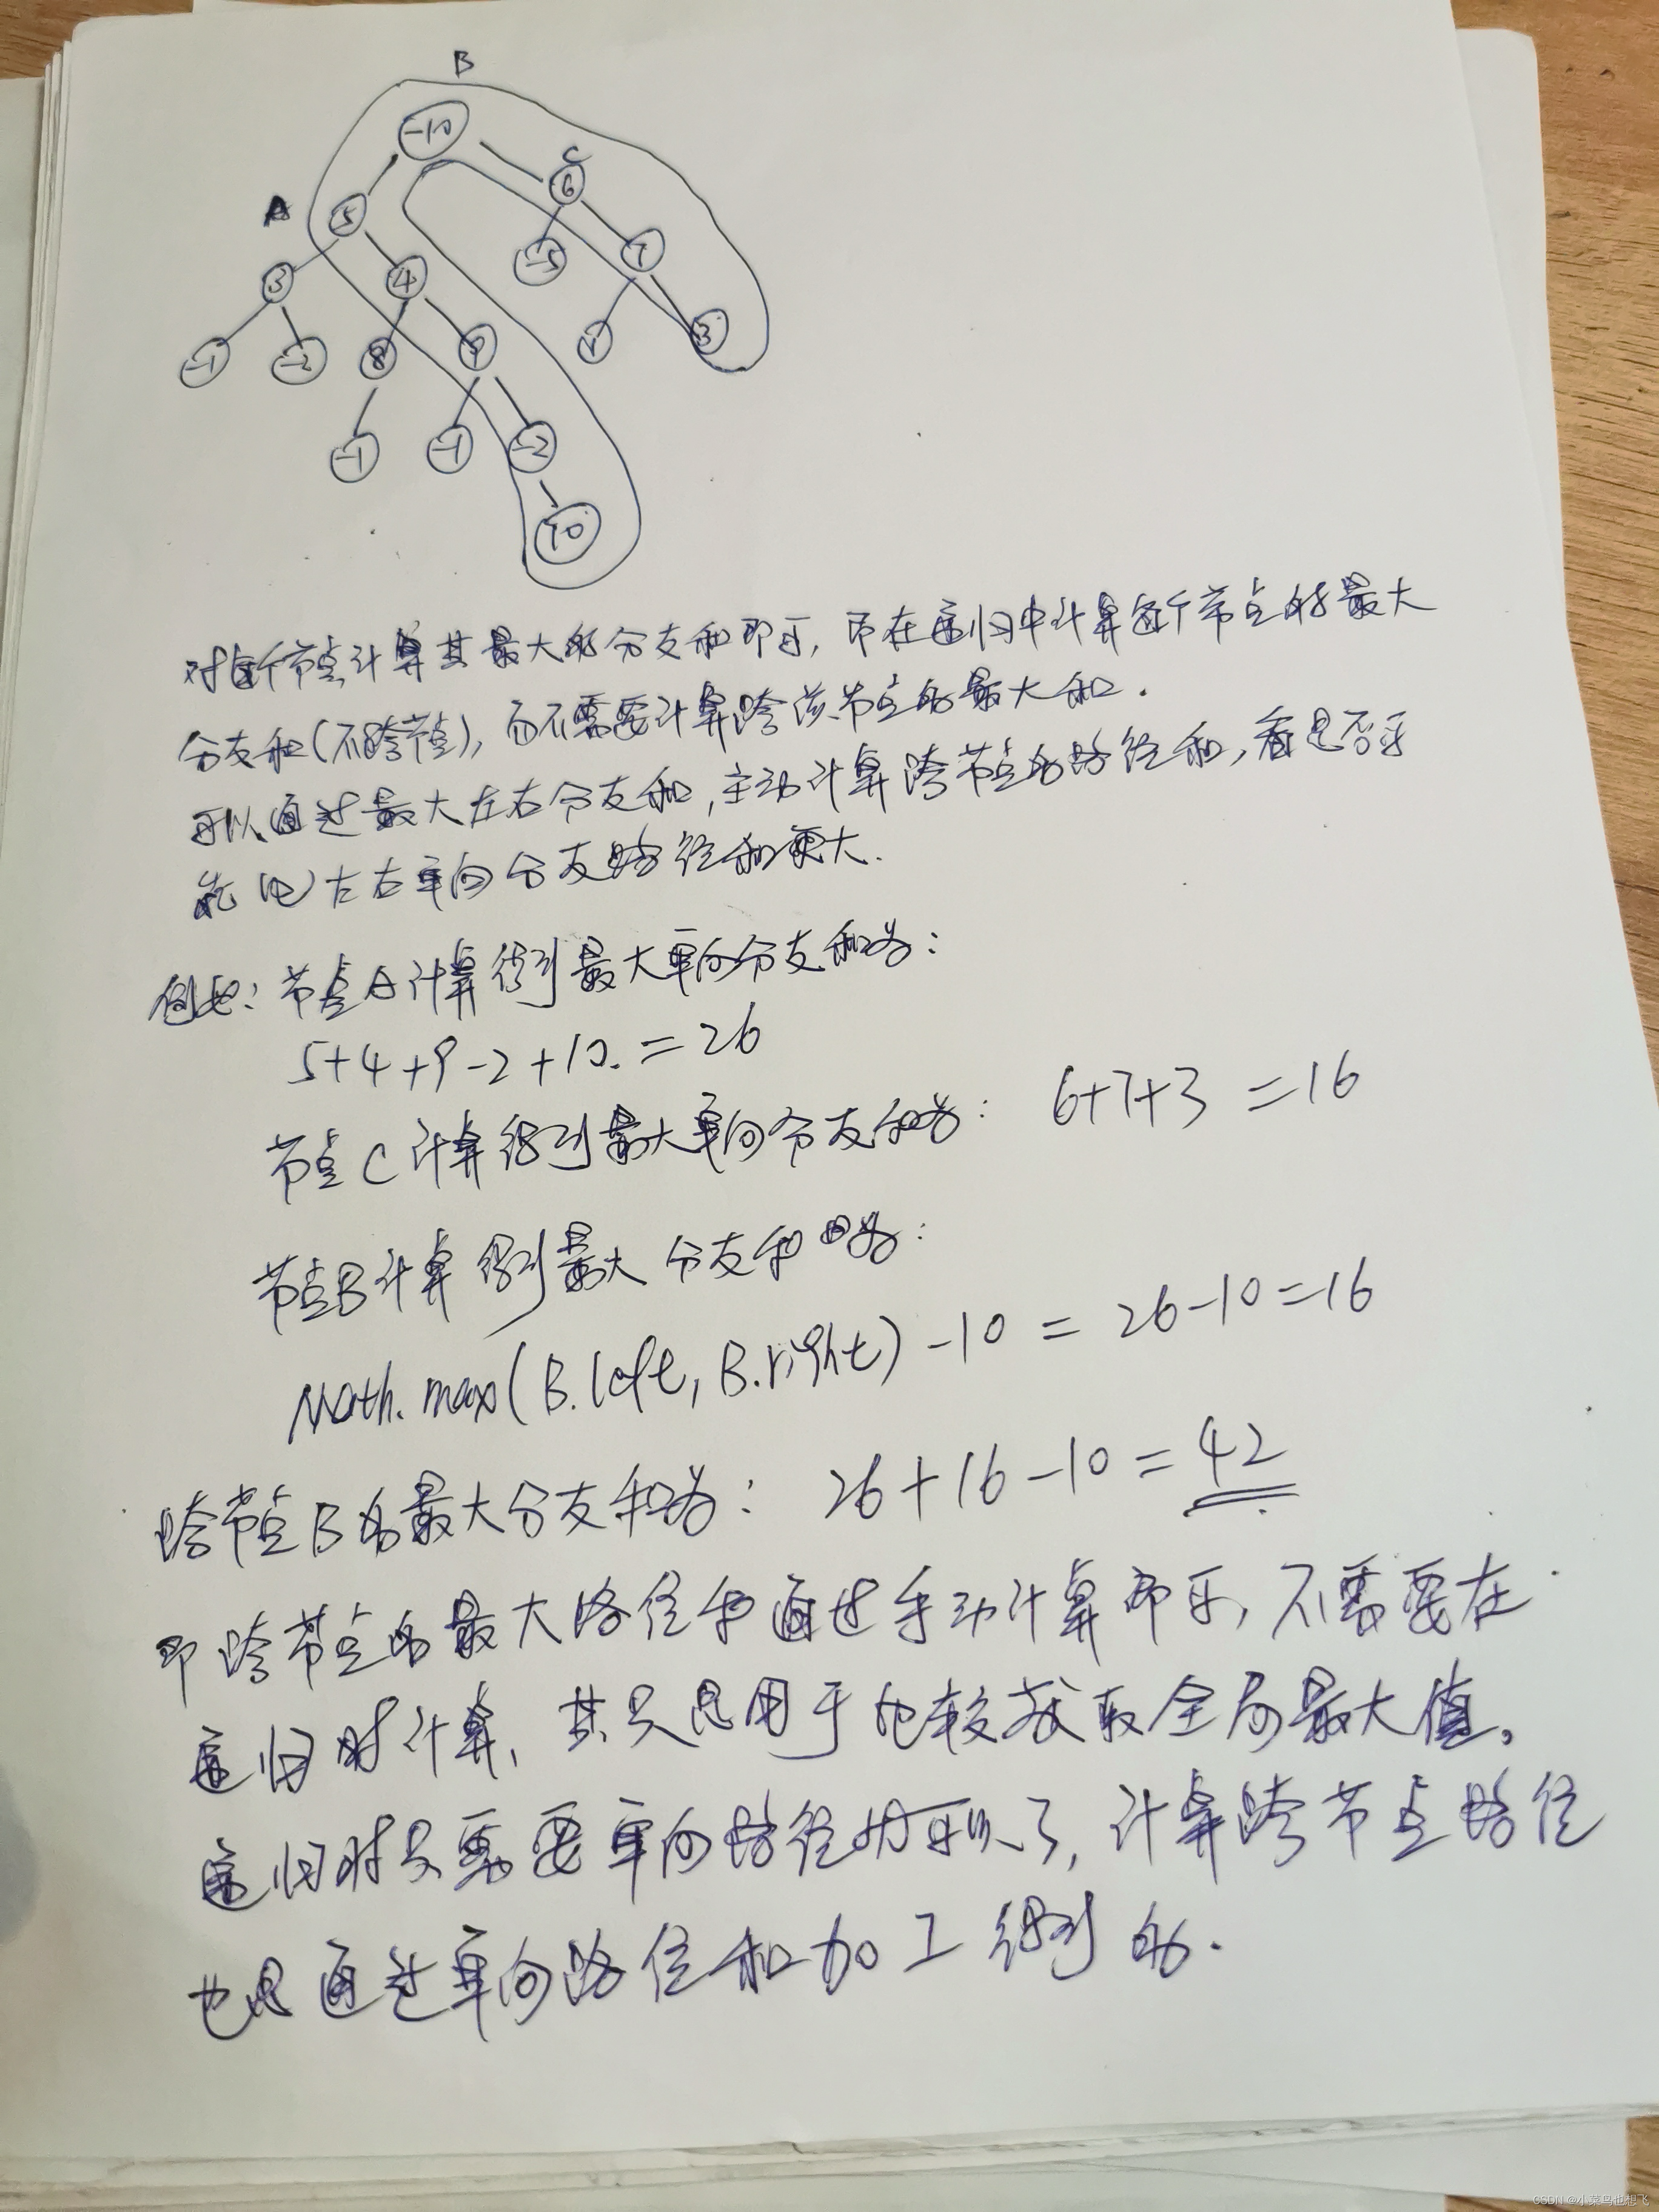 B
-10
C
6
A
5
3
4
-5
7
-1
-2
8
9
3
-1
-1
-2
10
对每个节点计算其最大的分支和即可，即在递归中计算每个节点的最大
分支和(不跨节点)，而不需要计算跨该节点的最大和.
可以通过最大左右分支和，主动计算跨节点的路径和，看是否
能比左右单向分支路径和更大.
例如：节点A计算得到最大单向分支和为：
5+4+9-2+10.=26
节点C计算得到最大单向分支和为： 6+7+3=16
节点B计算得到最大分支和为：
Math.max(B.left, B.right)-10=26-10=16
跨节点B的最大分支和为： 26+16-10=42
即跨节点的最大路径和通过手动计算即可，不需要在
递归时计算，其只是用于比较获取全局最大值。
递归时只需要单向路径的了，计算跨节点路径
也是通过单向路径和加工得到的.
CSDN @小菜鸟也想飞